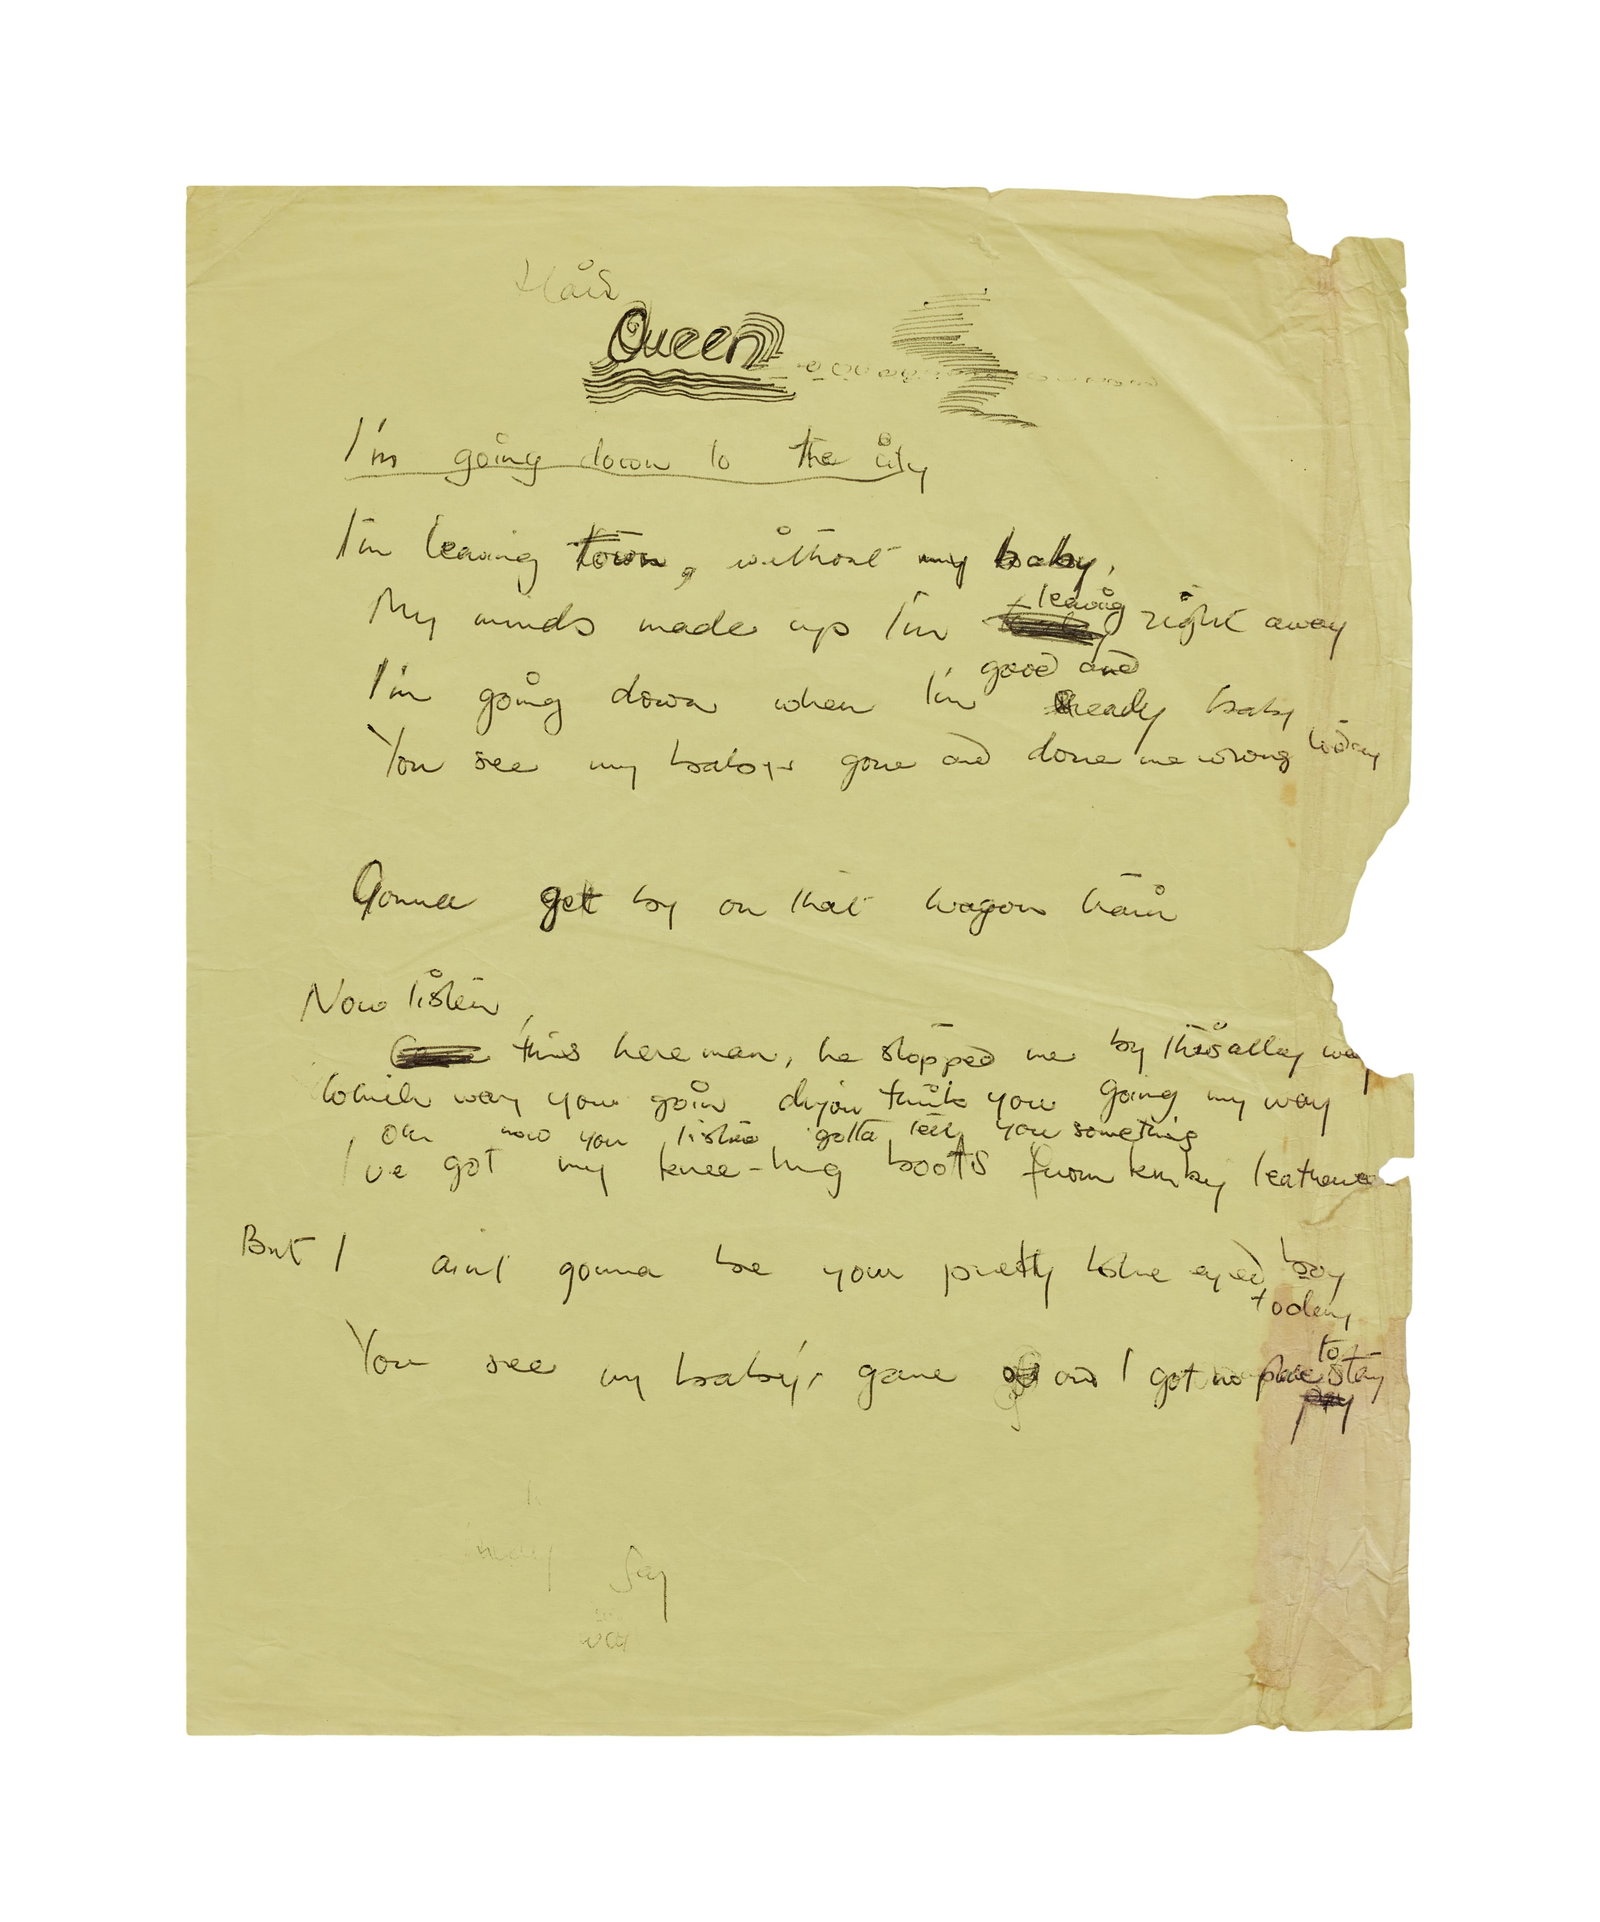 Hair
Queen
I'm going down to the city
I'm leaving town, without my baby,
My minds made up I'm leaving right away
good and
I'm going down when I'm ready baby
You see my baby's gone and done me wrong today
Gonna get by on that wagon train
Now listen,
this here man, he stopped me by this alley way
Which way you goin d'you think you going my way
now you listen gotta tell you something
I've got my knee-hug boots from kinky leather
But I ain't gonna be your pretty blue eyed boy
today
You see my baby's gone and I got no place to stay
pay
Say
way